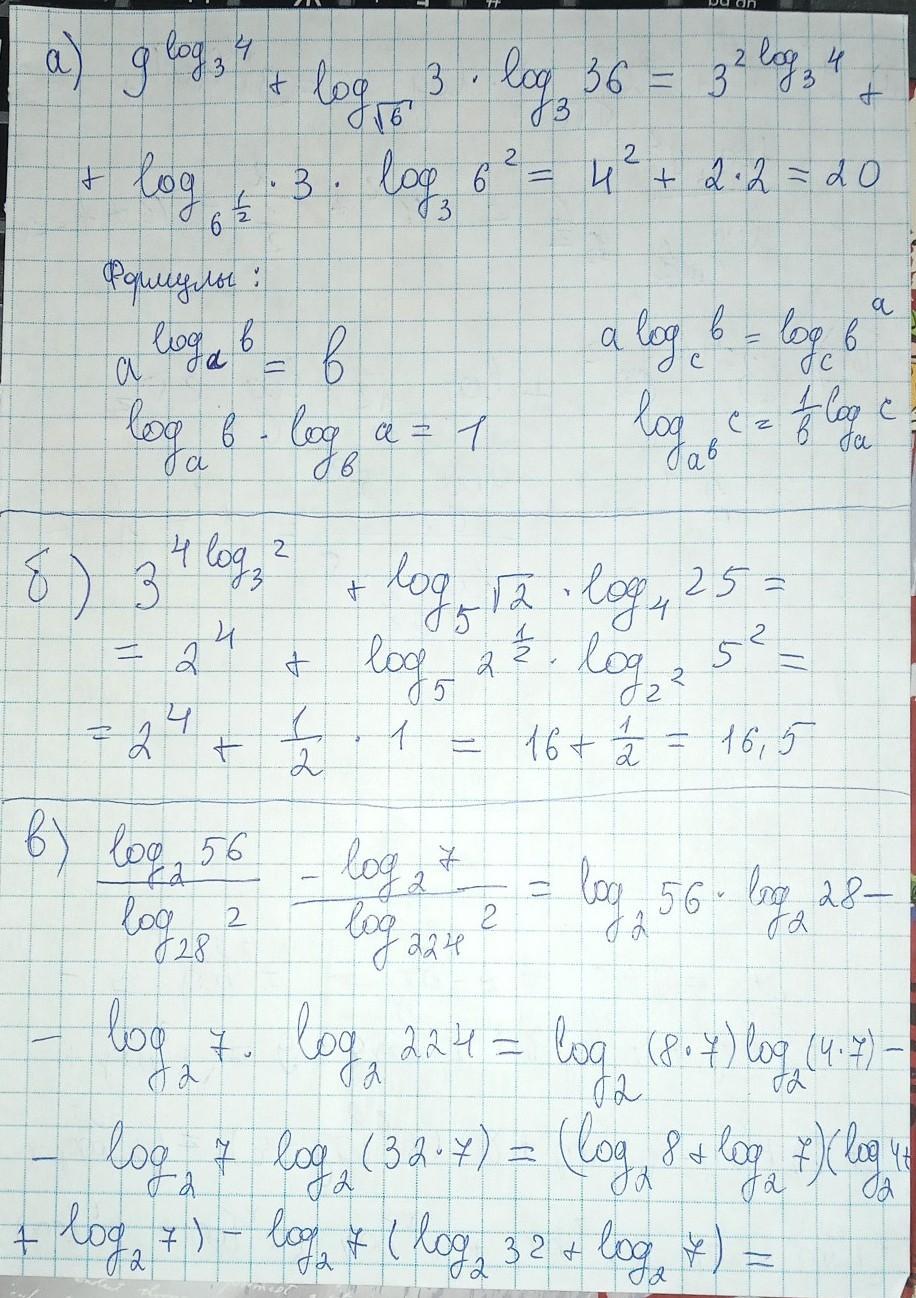 а) 9^{log_3 4} + log_{√6} 3 · log_3 36 = 3^{2 log_3 4} +
+ log_{6^{1/2}} · 3 · log_3 6^2 = 4^2 + 2·2 = 20
Формулы:
a^{log_a b} = b
a log_c b = log_c b^a
log_a b · log_b a = 1
log_{a^b} c = 1/b log_a c
б) 3^{4 log_3 2} + log_5 √2 · log_4 25 =
= 2^4 + log_5 2^{1/2} · log_{2^2} 5^2 =
= 2^4 + 1/2 · 1 = 16 + 1/2 = 16,5
в) log_2 56 / log_28 2 - log_2 7 / log_224 2 = log_2 56 · log_2 28 -
- log_2 7 · log_2 224 = log_2 (8·7) log_2 (4·7) -
- log_2 7 log_2 (32·7) = (log_2 8 + log_2 7)(log_2 4+
+ log_2 7) - log_2 7 (log_2 32 + log_2 7) =